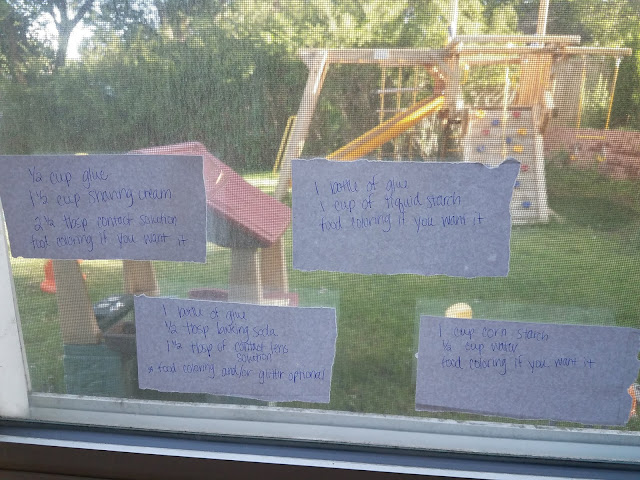 ½ cup glue
1 ½ cup shaving cream
2 ½ tbsp contact solution
food coloring if you want it
1 bottle of glue
1 cup of liquid starch
food coloring if you want it
1 bottle of glue
½ tbsp baking soda
1 ½ tbsp of contact lens
solution
food coloring and/or glitter optional
1 cup corn starch
½ cup water
food coloring if you want it